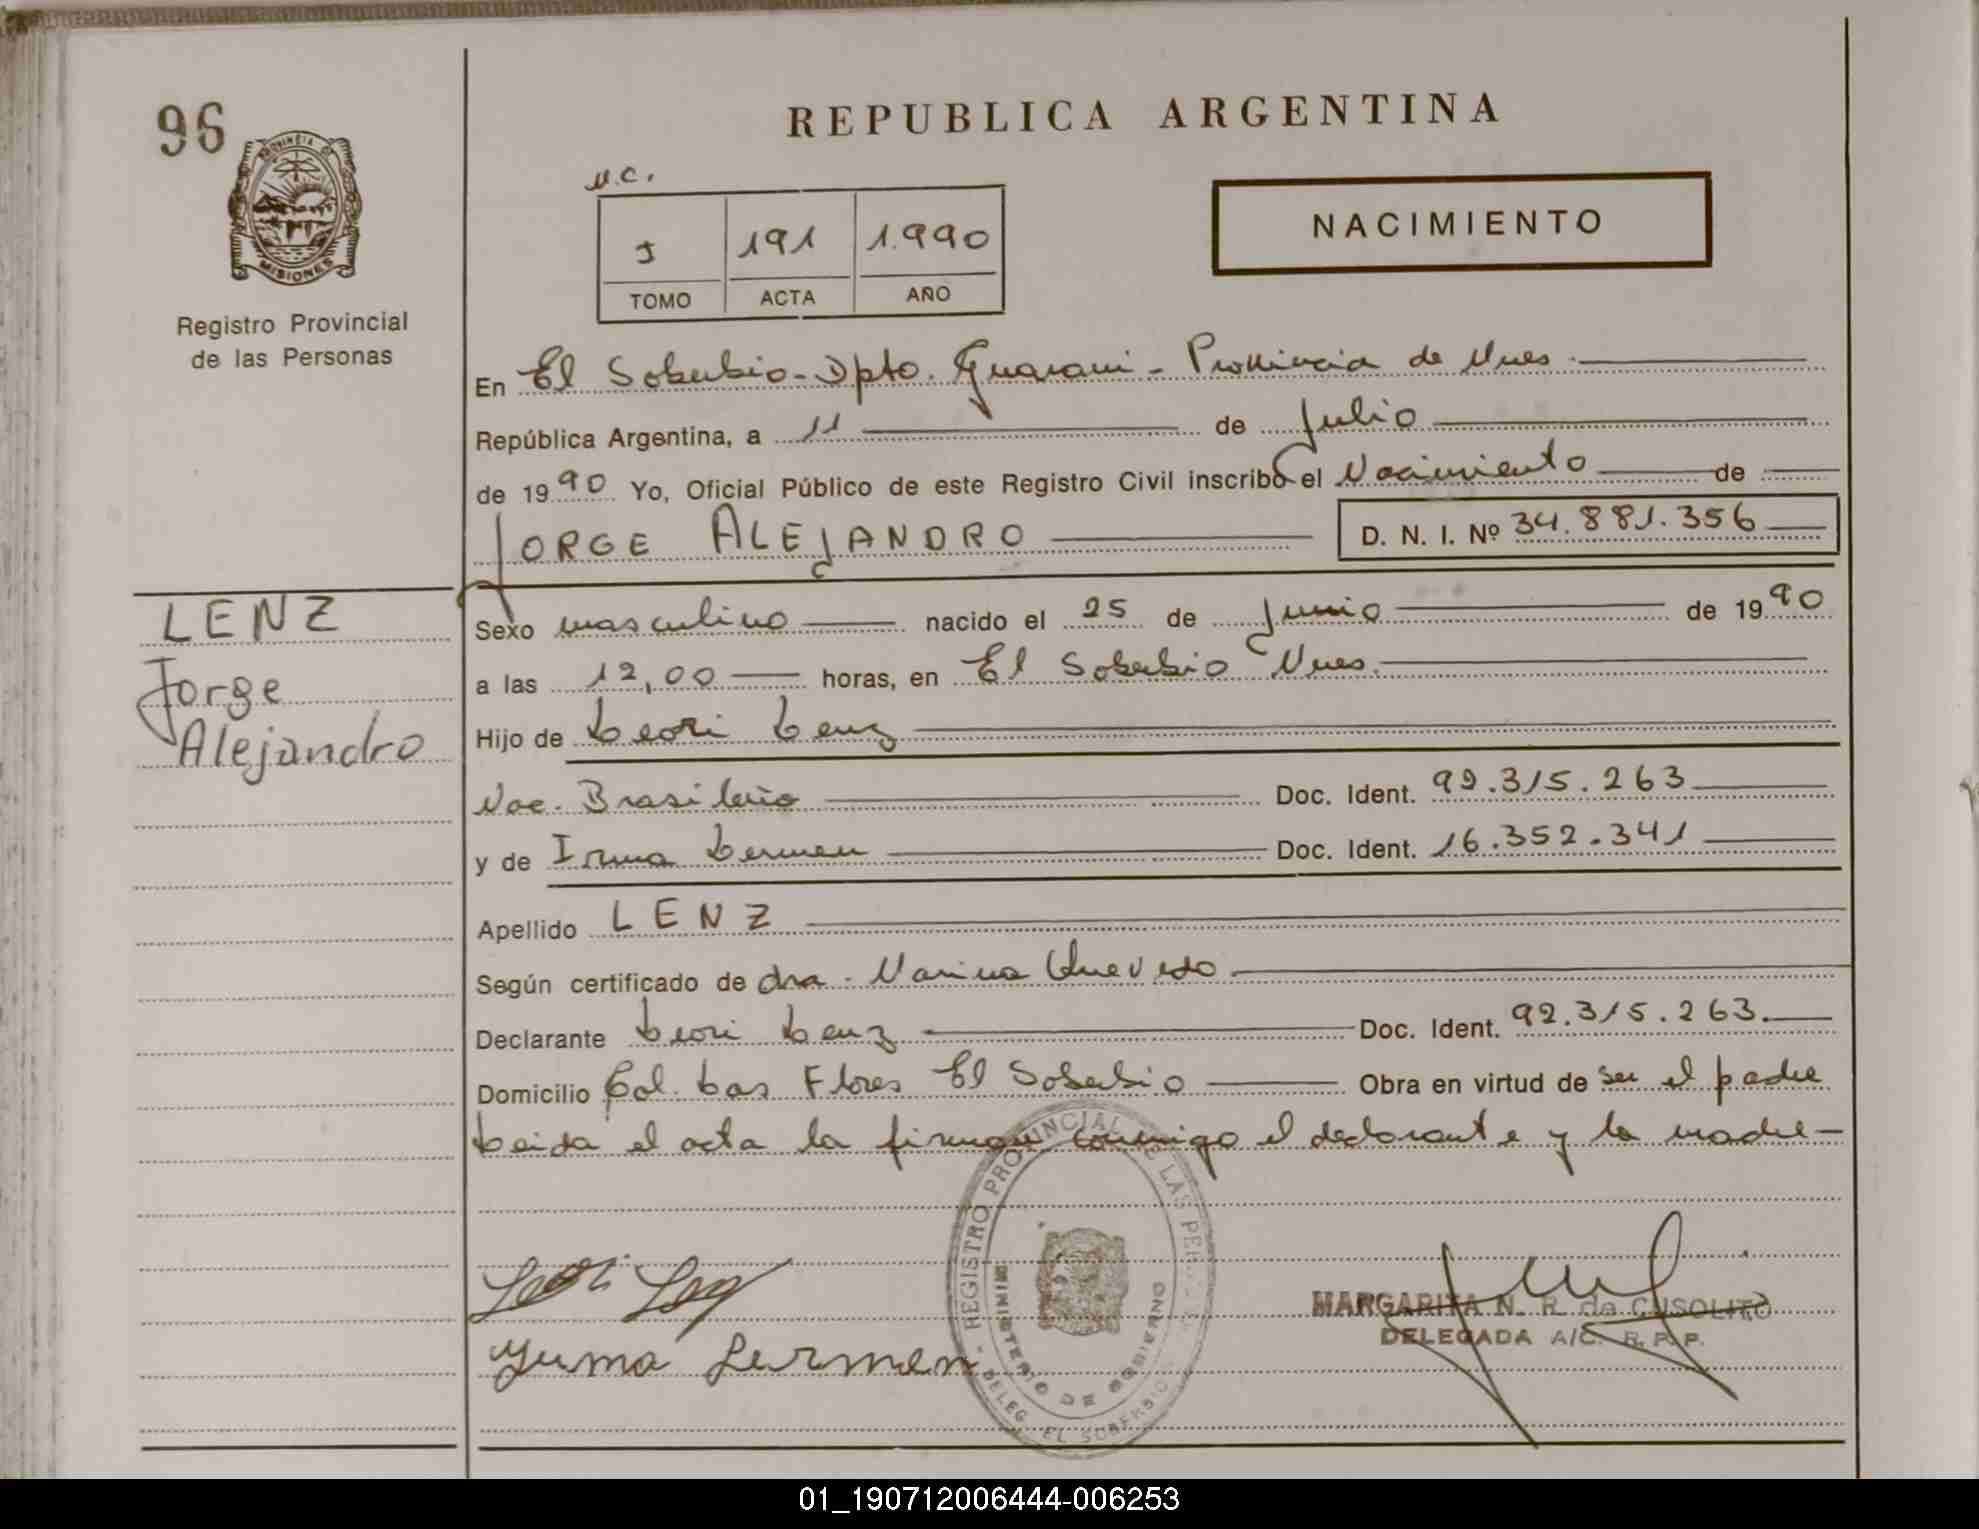 96
REPUBLICA ARGENTINA
PROVINCIA DE MISIONES
Registro Provincial
de las Personas
N.C.
I 191 1.990
TOMO ACTA AÑO
NACIMIENTO
En El Soberbio - Dpto. Guarani - Provincia de Mnes.
República Argentina, a 11 de Julio
de 1990 Yo, Oficial Público de este Registro Civil inscribo el Nacimiento de
JORGE ALEJANDRO D. N. I. Nº 34.881.356
LENZ
Jorge
Alejandro
Sexo masculino nacido el 25 de Junio de 1990
a las 12,00 horas, en El Soberbio Mnes.
Hijo de Leori Lenz
Nac. Brasileño Doc. Ident. 92.315.263
y de Irma Lermen Doc. Ident. 16.352.341
Apellido LENZ
Según certificado de dra. Marina Quevedo
Declarante Leori Lenz Doc. Ident. 92.315.263.
Domicilio Col. Las Flores El Soberbio Obra en virtud de ser el padre
Leida el acta la firman conmigo el declarante y la madre-
REGISTRO PROVINCIAL DE LAS PERSONAS
MINISTERIO DE GOBIERNO
DELEG. EL SOBERBIO
Leori Lenz
Yrma Lermen
MARGARITA N. R. de CUSOLITO
DELEGADA A/C. R. P. P.
01_190712006444-006253